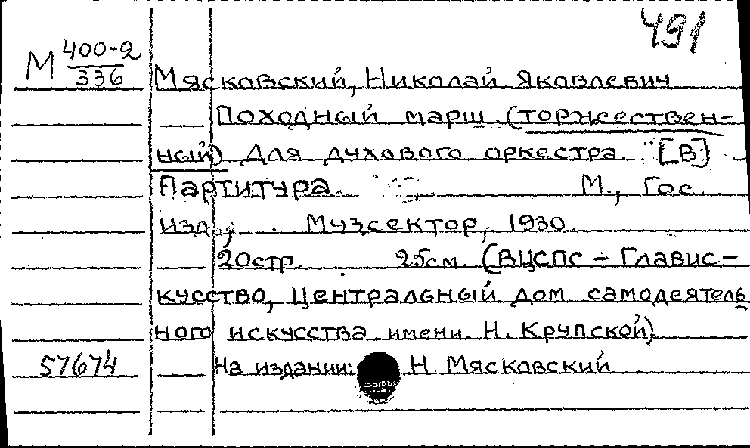 491
М 400-2
336
Мясковский, Николай Яковлевич
Походный марш (торжествен-
ный) Для духового оркестра. [В]
Партитура. М., Гос.
изд., Музсектор, 1930.
20стр. 25см. (ВЦСПС - Главис-
кусство, Центральный дом самодеятель
ного искусства имени Н. Крупской)
57674 На издании: Н Мясковский